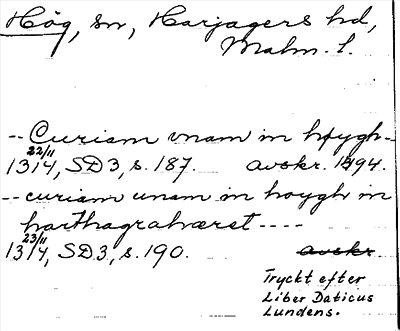 Hög, sn, Harjagers hd,
Malm. l.
-- Curiam unam in høygh --
22/11
1314, SD3, s. 187. avskr. 1494.
-- curiam unam in hoygh in
harthagrahæret ----
23/11
1314, SD3, s. 190. avskr.
Tryckt efter
Liber Daticus
Lundens.